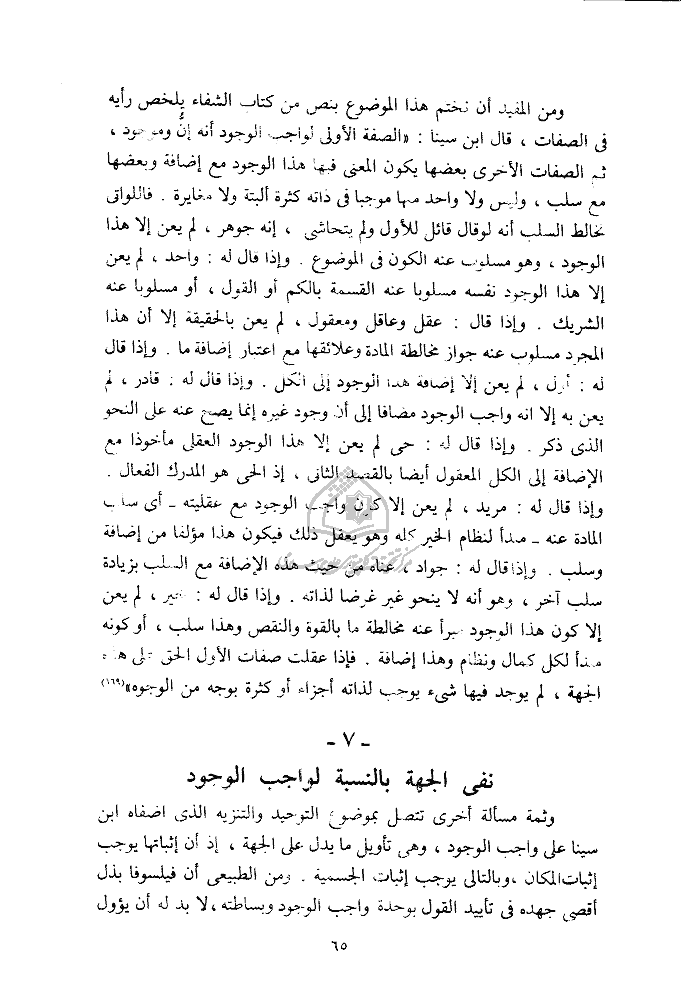 ومن المفيد أن نختم هذا الموضوع بنص من كتاب الشفاء يلخص رأيه
فى الصفات ، قال ابن سينا : «الصفة الأولى لواجب الوجود أنه إنٌّ وموجود ،
ثم الصفات الأخرى بعضها يكون المعنى فيها هذا الوجود مع إضافة وبعضها
مع سلب ، وليس ولا واحد منها موجبا فى ذاته كثرة ألبتة ولا مغايرة . فاللواتى
تخالط السلب أنه لوقال قائل للأول ولم يتحاشى ، إنه جوهر ، لم يعن إلا هذا
الوجود ، وهو مسلوب عنه الكون فى الموضوع . وإذا قال له : واحد ، لم يعن
إلا هذا الوجود نفسه مسلوبا عنه القسمة بالكم أو القول ، أو مسلوبا عنه
الشريك . وإذا قال : عقل وعاقل ومعقول ، لم يعن بالحقيقة إلا أن هذا
المجرد مسلوب عنه جواز مخالطة المادة وعلائقها مع اعتبار إضافة ما . وإذا قال
له : أول ، لم يعن إلا إضافة هذا الوجود إلى الكل . وإذا قال له : قادر ، لم
يعن به إلا انه واجب الوجود مضافا إلى أن وجود غيره إنما يصح عنه على النحو
الذى ذكر . وإذا قال له : حى لم يعن إلا هذا الوجود العقلى مأخوذا مع
الإضافة إلى الكل المعقول أيضا بالقصد الثانى ، إذ الحى هو المدرك الفعال .
وإذا قال له : مريد ، لم يعن إلا كون واجب الوجود مع عقليته – أى سلب
المادة عنه – مبدأ لنظام الخير كله وهو يعقل ذلك فيكون هذا مؤلفا من إضافة
وسلب . وإذا قال له : جواد ، عناه من حيث هذه الإضافة مع السلب بزيادة
سلب آخر ، وهو أنه لا ينحو غير غرضا لذاته . وإذا قال له : خير ، لم يعن
إلا كون هذا الوجود مبرأ عنه مخالطة ما بالقوة والنقص وهذا سلب ، أو كونه
مبدأ لكل كمال ونظام وهذا إضافة . فإذا عقلت صفات الأول الحق على هذه
الجهة ، لم يوجد فيها شىء يوجب لذاته أجزاء أو كثرة بوجه من الوجوه»(١٦٩)
- ٧ -
نفى الجهة بالنسبة لواجب الوجود
وثمة مسألة أخرى تتصل بموضوع التوحيد والتنزيه الذى اضفاه ابن
سينا على واجب الوجود ، وهى تأويل ما يدل على الجهة ، إذ أن إثباتها يوجب
إثبات المكان ، وبالتالى يوجب إثبات الجسمية . ومن الطبيعى أن فيلسوفا بذل
أقصى جهده فى تأييد القول بوحدة واجب الوجود وبساطته ، لا بد له أن يؤول
٦٥